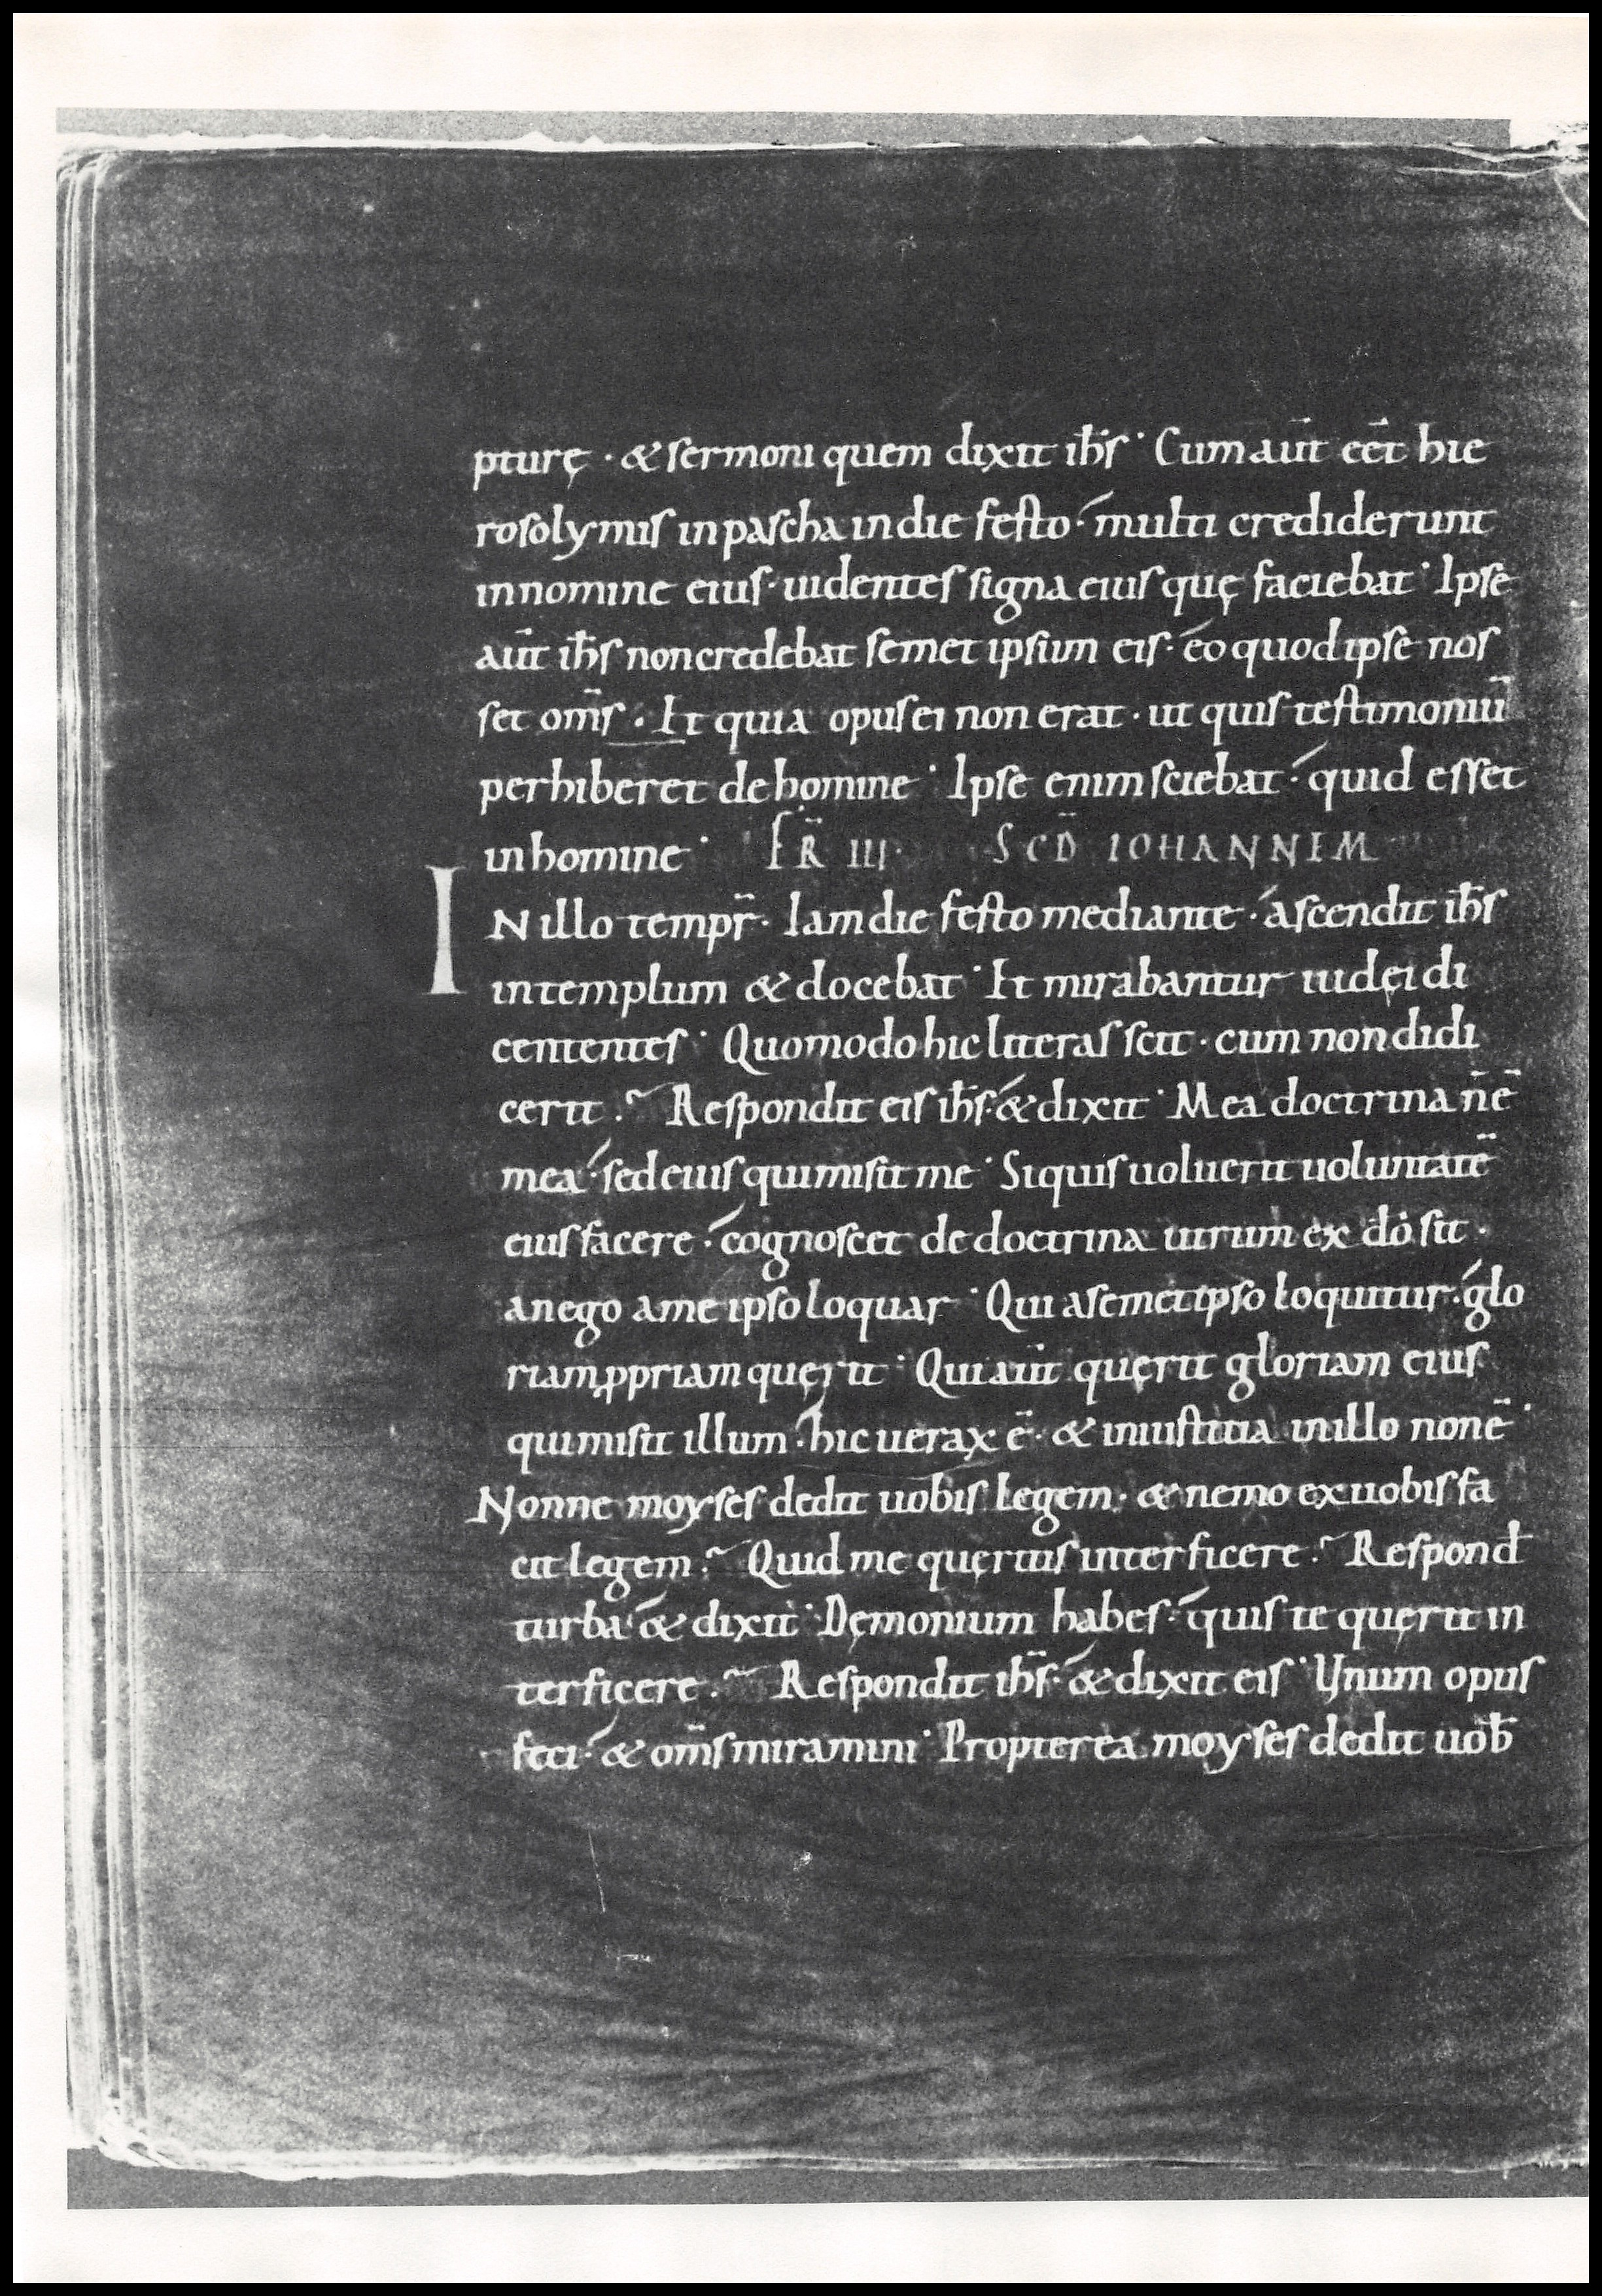 pturę · & sermoni quem dixit ih̅s · Cum aut̅ eet̅ hie
rosolymis in pascha in die festo · multi crediderunt
in nomine eius · uidentes signa eius quę faciebat · Ipse
aut̅ ih̅s non credebat semet ipsum eis · eo quod ipse nos
set om̅s · Et quia opus ei non erat · ut quis testimoniu̅
perhiberet de homine · Ipse enim sciebat · quid esset
in homine · FR̅ III · SCD̅ IOHANNEM
IN illo tempr̅ · Iam die festo mediante · ascendit ih̅s
in templum & docebat · Et mirabantur iudęi di
cententes · Quomodo hic litteras scit · cum non didi
cerit ? Respondit eis ih̅s · & dixit · Mea doctrina n̅ e̅
mea · sed eius qui misit me · Si quis uoluerit uoluntate̅
eius facere · cognoscet de doctrina utrum ex do̅ sit ·
an ego a me ipso loquar · Qui a semet ipso loquitur · glo
riam ꝓpriam quęrit · Qui aut̅ quęrit gloriam eius
qui misit illum · hic uerax e̅ · & iniustitia in illo non e̅ ·
Nonne moyses dedit uobis legem · & nemo ex uobis fa
cit legem ? Quid me quęritis interficere ? Respond̅
turba & dixit · Dęmonium habes · quis te quęrit in
terficere ? Respondit ih̅s · & dixit eis · Vnum opus
feci · & om̅s miramini · Propterea moyses dedit uob̅